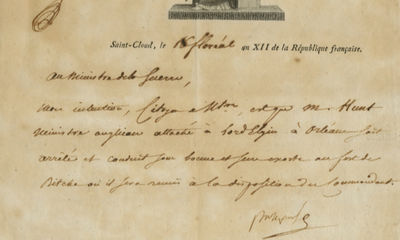 Saint-Cloud, le 18 floréal an XII de la République française.
Au Ministre de la Guerre,
Mon intention, Citoyen Mtre, est que M. Hunt
Ministre anglican attaché à Lord Elgin à Orléans soit
arrêté et conduit sous bonne et sure escorte au fort de
Bitche où il sera remis à la disposition du Commandant.